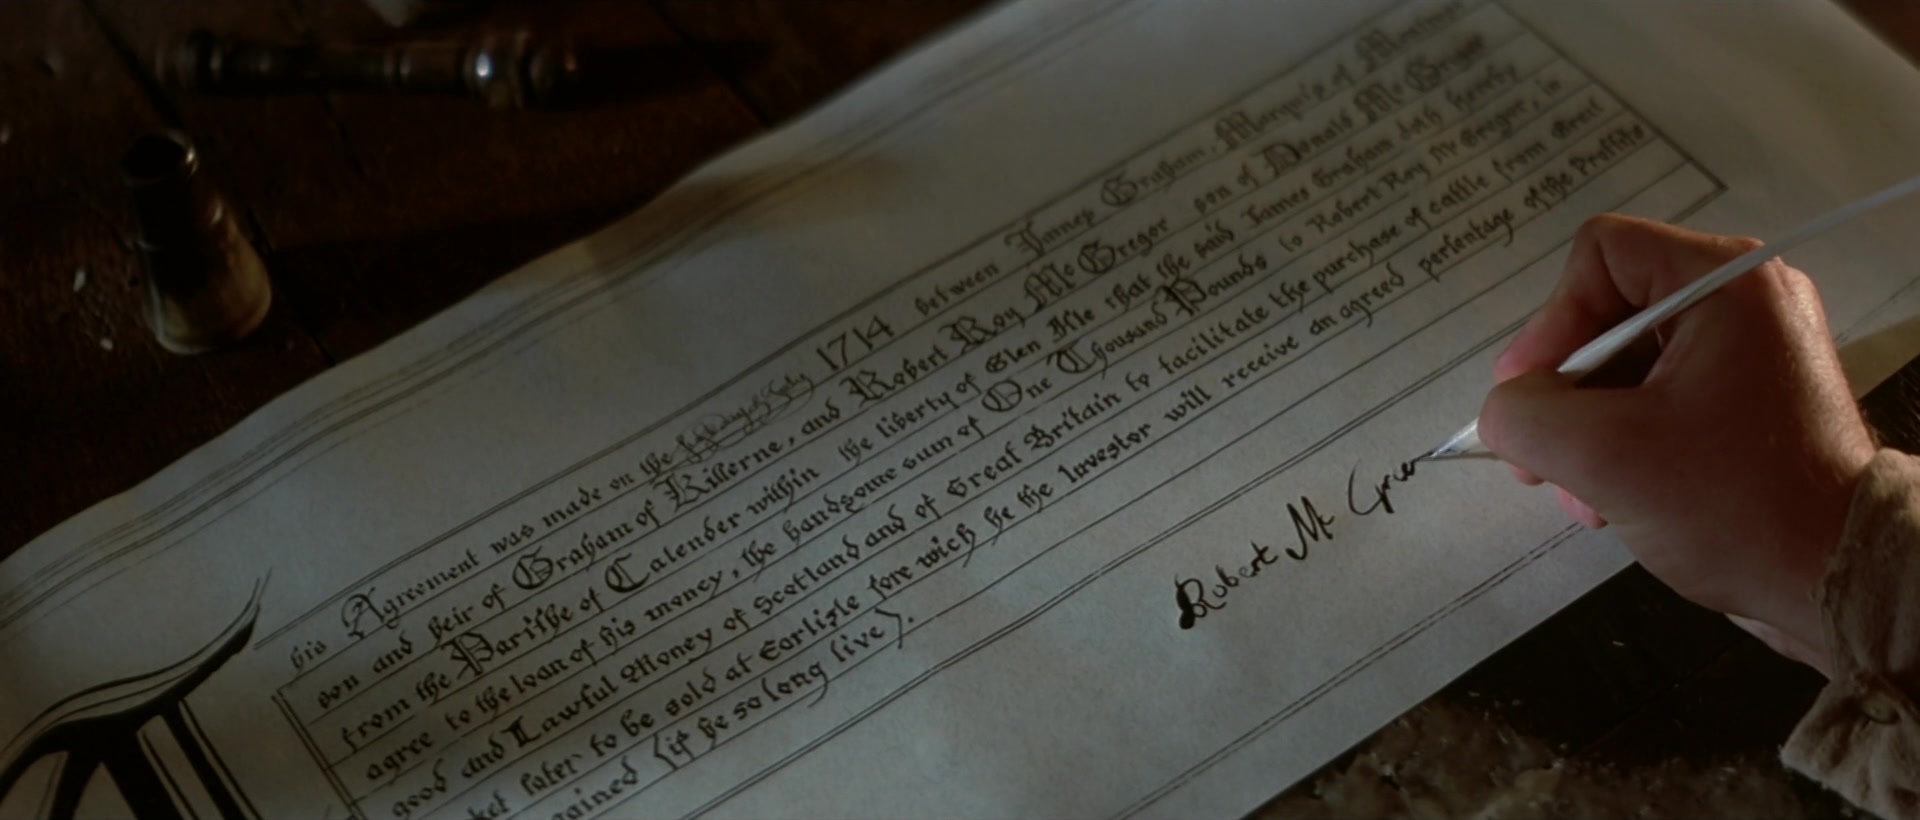 his Agreement was made on the 1714 between James Graham, Marquis of
son and heir of Graham of Killerne, and Robert Roy Mc Gregor son of Donald Mc Gregor
from the Parishe of Calender within the liberty of Glen Isle that the said James Graham doth hereby
agree to the loan of his money, the handsome sum of One Thousand Pounds to Robert Roy Mc Gregor, in
good and Lawful Money of Scotland and of Great Britain to facilitate the purchase of cattle from Greil
ket later to be sold at Earlisle fore wich he the Investor will receive an agreed persentage of the Proffits
gained (if he so long live).
Robert Mc Greg